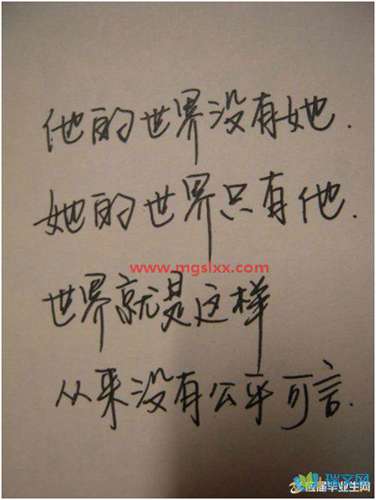 他的世界没有她.
她的世界只有他.
www.mgslxx.com
世界就是这样
从来没有公平可言.
应届毕业生网